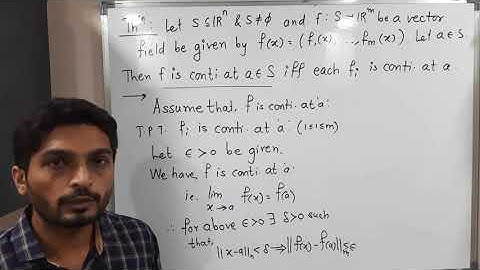 Thm: Let S ⊆ ℝⁿ & S ≠ ϕ and f: S → ℝᵐ be a vector
field be given by f(x) = (f₁(x), ..., fₘ(x)) Let a ∈ S
Then f is conti. at a ∈ S iff each fᵢ is conti at a
→ Assume that, f is conti. at 'a'.
T.P.T. fᵢ is conti. at 'a' (1≤i≤m)
Let ϵ > 0 be given.
We have, f is conti. at 'a'.
i.e. lim x→a f(x) = f(a)
∴ for above ϵ > 0 ∃ δ > 0 such
that, ||x-a||ₙ < δ ⟹ ||f(x) - f(a)||ₘ < ϵ